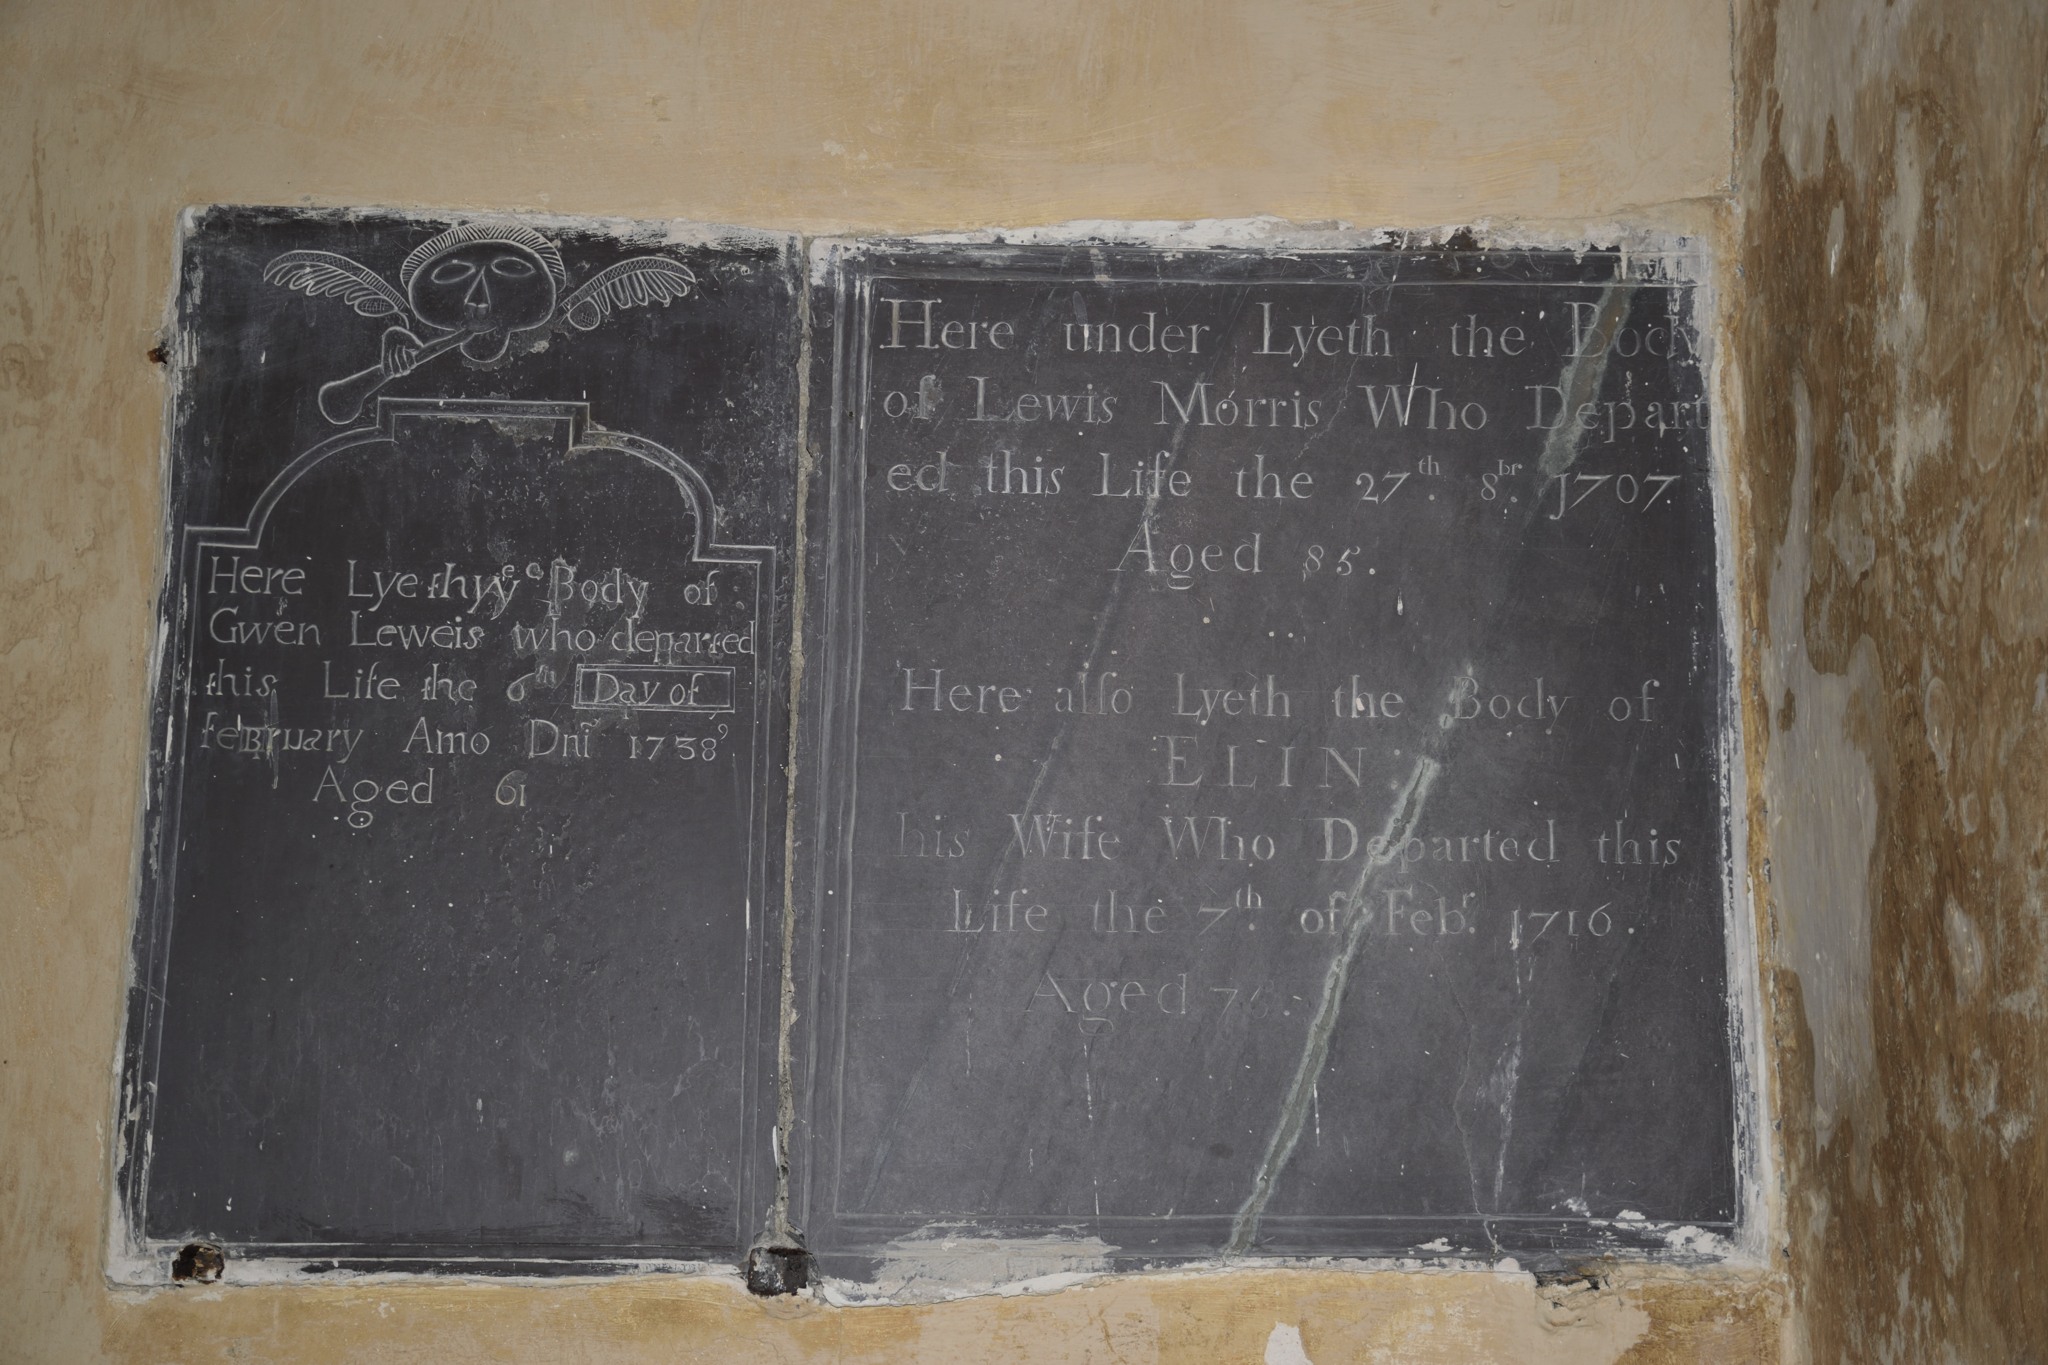 Here Lyethyy<sup>e</sup> Body of
Gwen Leweis who departed
this Life the 6th Day of
february Anno Dni 1738
Aged 61
Here under Lyeth the Body
of Lewis Morris Who Depart
ed this Life the 27th. 8br. 1707.
Aged 85.
Here also Lyeth the Body of
ELIN
his Wife Who Departed this
Life the 7th. of Febr. 1716.
Aged